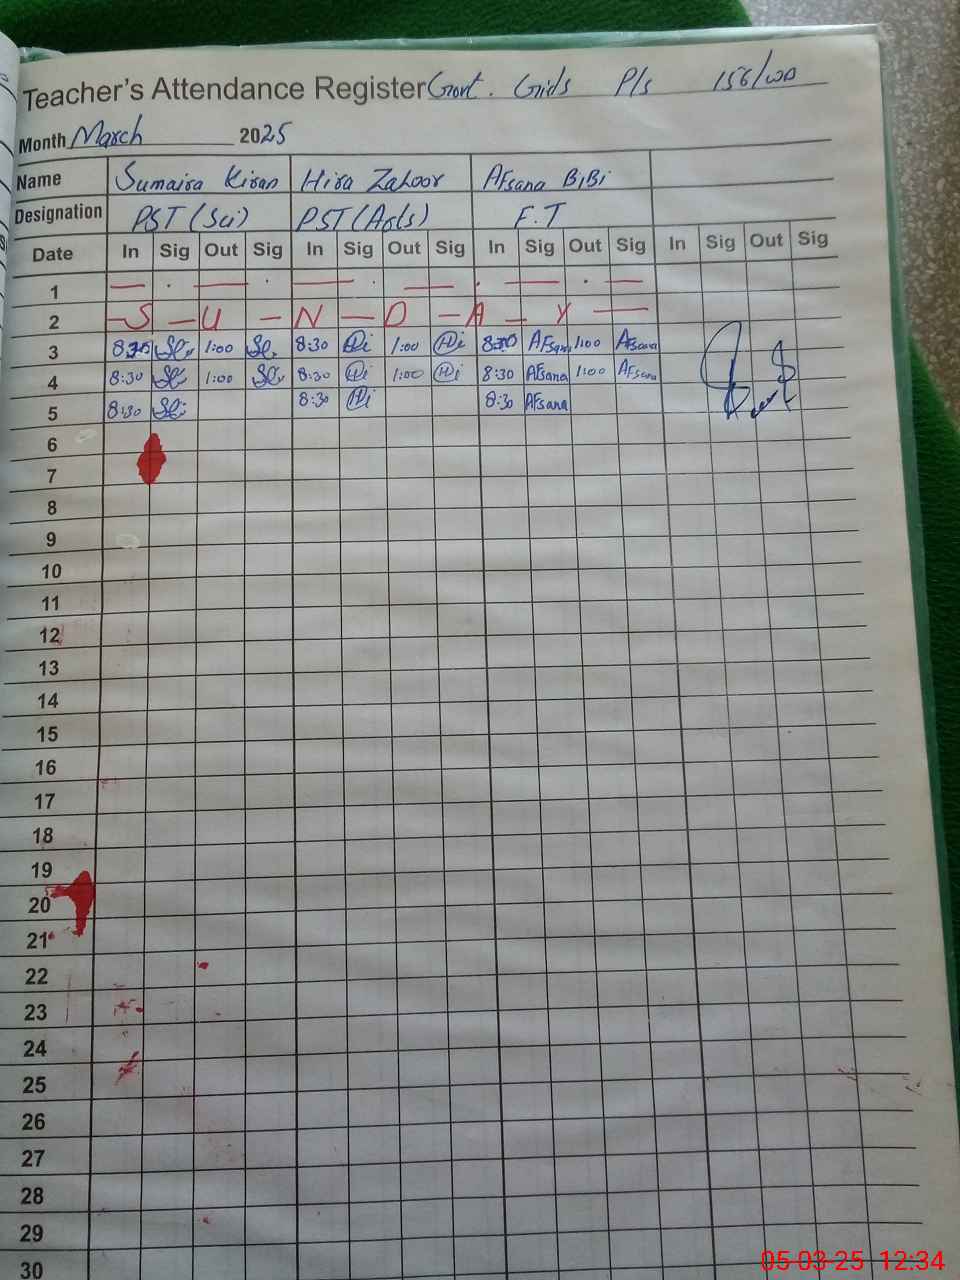 Teacher's Attendance Register Govt. Girls P/s 156/WB
Month March 2025
Name Sumaira Kiran Hira Zahoor Afsana BiBi
Designation PST (Sci) PST (Arts) F.T
Date In Sig Out Sig In Sig Out Sig In Sig Out Sig In Sig Out Sig
1
2 S U N D A Y
3 8:30 1:00 8:30 1:00 8:30 Afsana 1:00 Afsana
4 8:30 1:00 8:30 1:00 8:30 Afsana 1:00 Afsana
5 8:30 8:30 8:30 Afsana
6
7
8
9
10
11
12
13
14
15
16
17
18
19
20
21
22
23
24
25
26
27
28
29
30
05-03-25 12:34